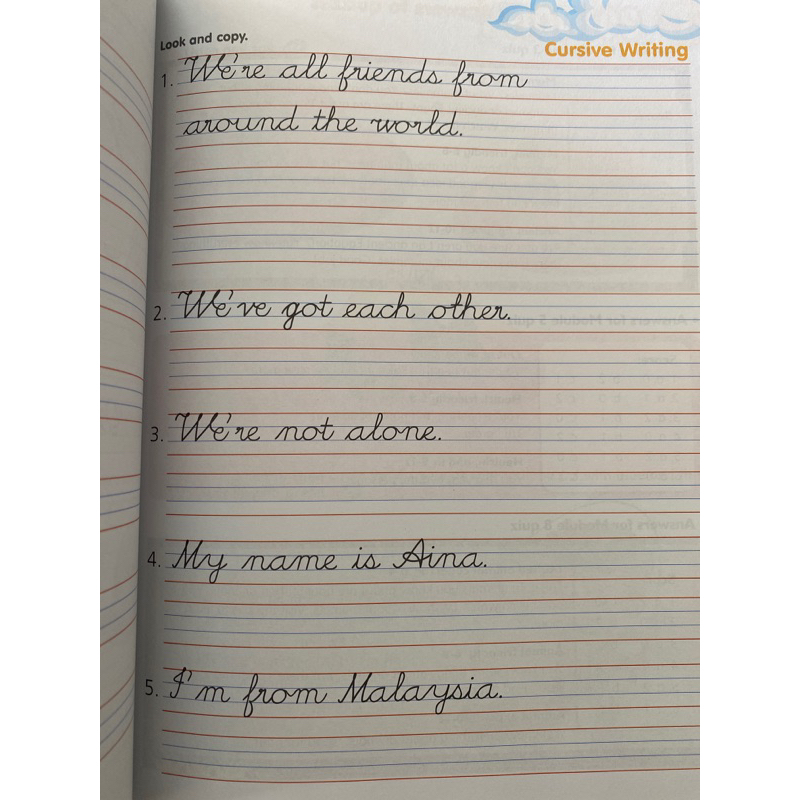 Look and copy.
Cursive Writing
1. We're all friends from
around the world.
2. We've got each other.
3. We're not alone.
4. My name is Aina.
5. I'm from Malaysia.